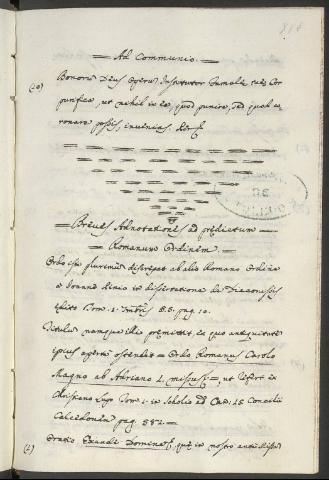 = Ad Communio. =
(20) Bonorum Deus Operum Institutor famulæ tuæ Cor
purifica, ut nihil in ea, quod punire, sed quod co
ronare possis, invenias. Per
= Breves Adnotationes ad prædictum =
= Romanum Ordinem. =
Ordo iste plurimum discrepat ab alio Romano Ordine
a Joanne in dissertatione de Diaconissis
edito Tom. I. pag. 10.
Titulus namque illi præmittit, ex quo antiquitate
ipsius aperte ostendit = Ordo Romanus Carolo
Magno ab Adriano I. missus = ut refert in
Christiano Lupo Tom. I. in Scholio ad Can. 15 Concilii
Calcedonen. pag. 882.
(1) Oratio Exaudi Domine quæ in nostro